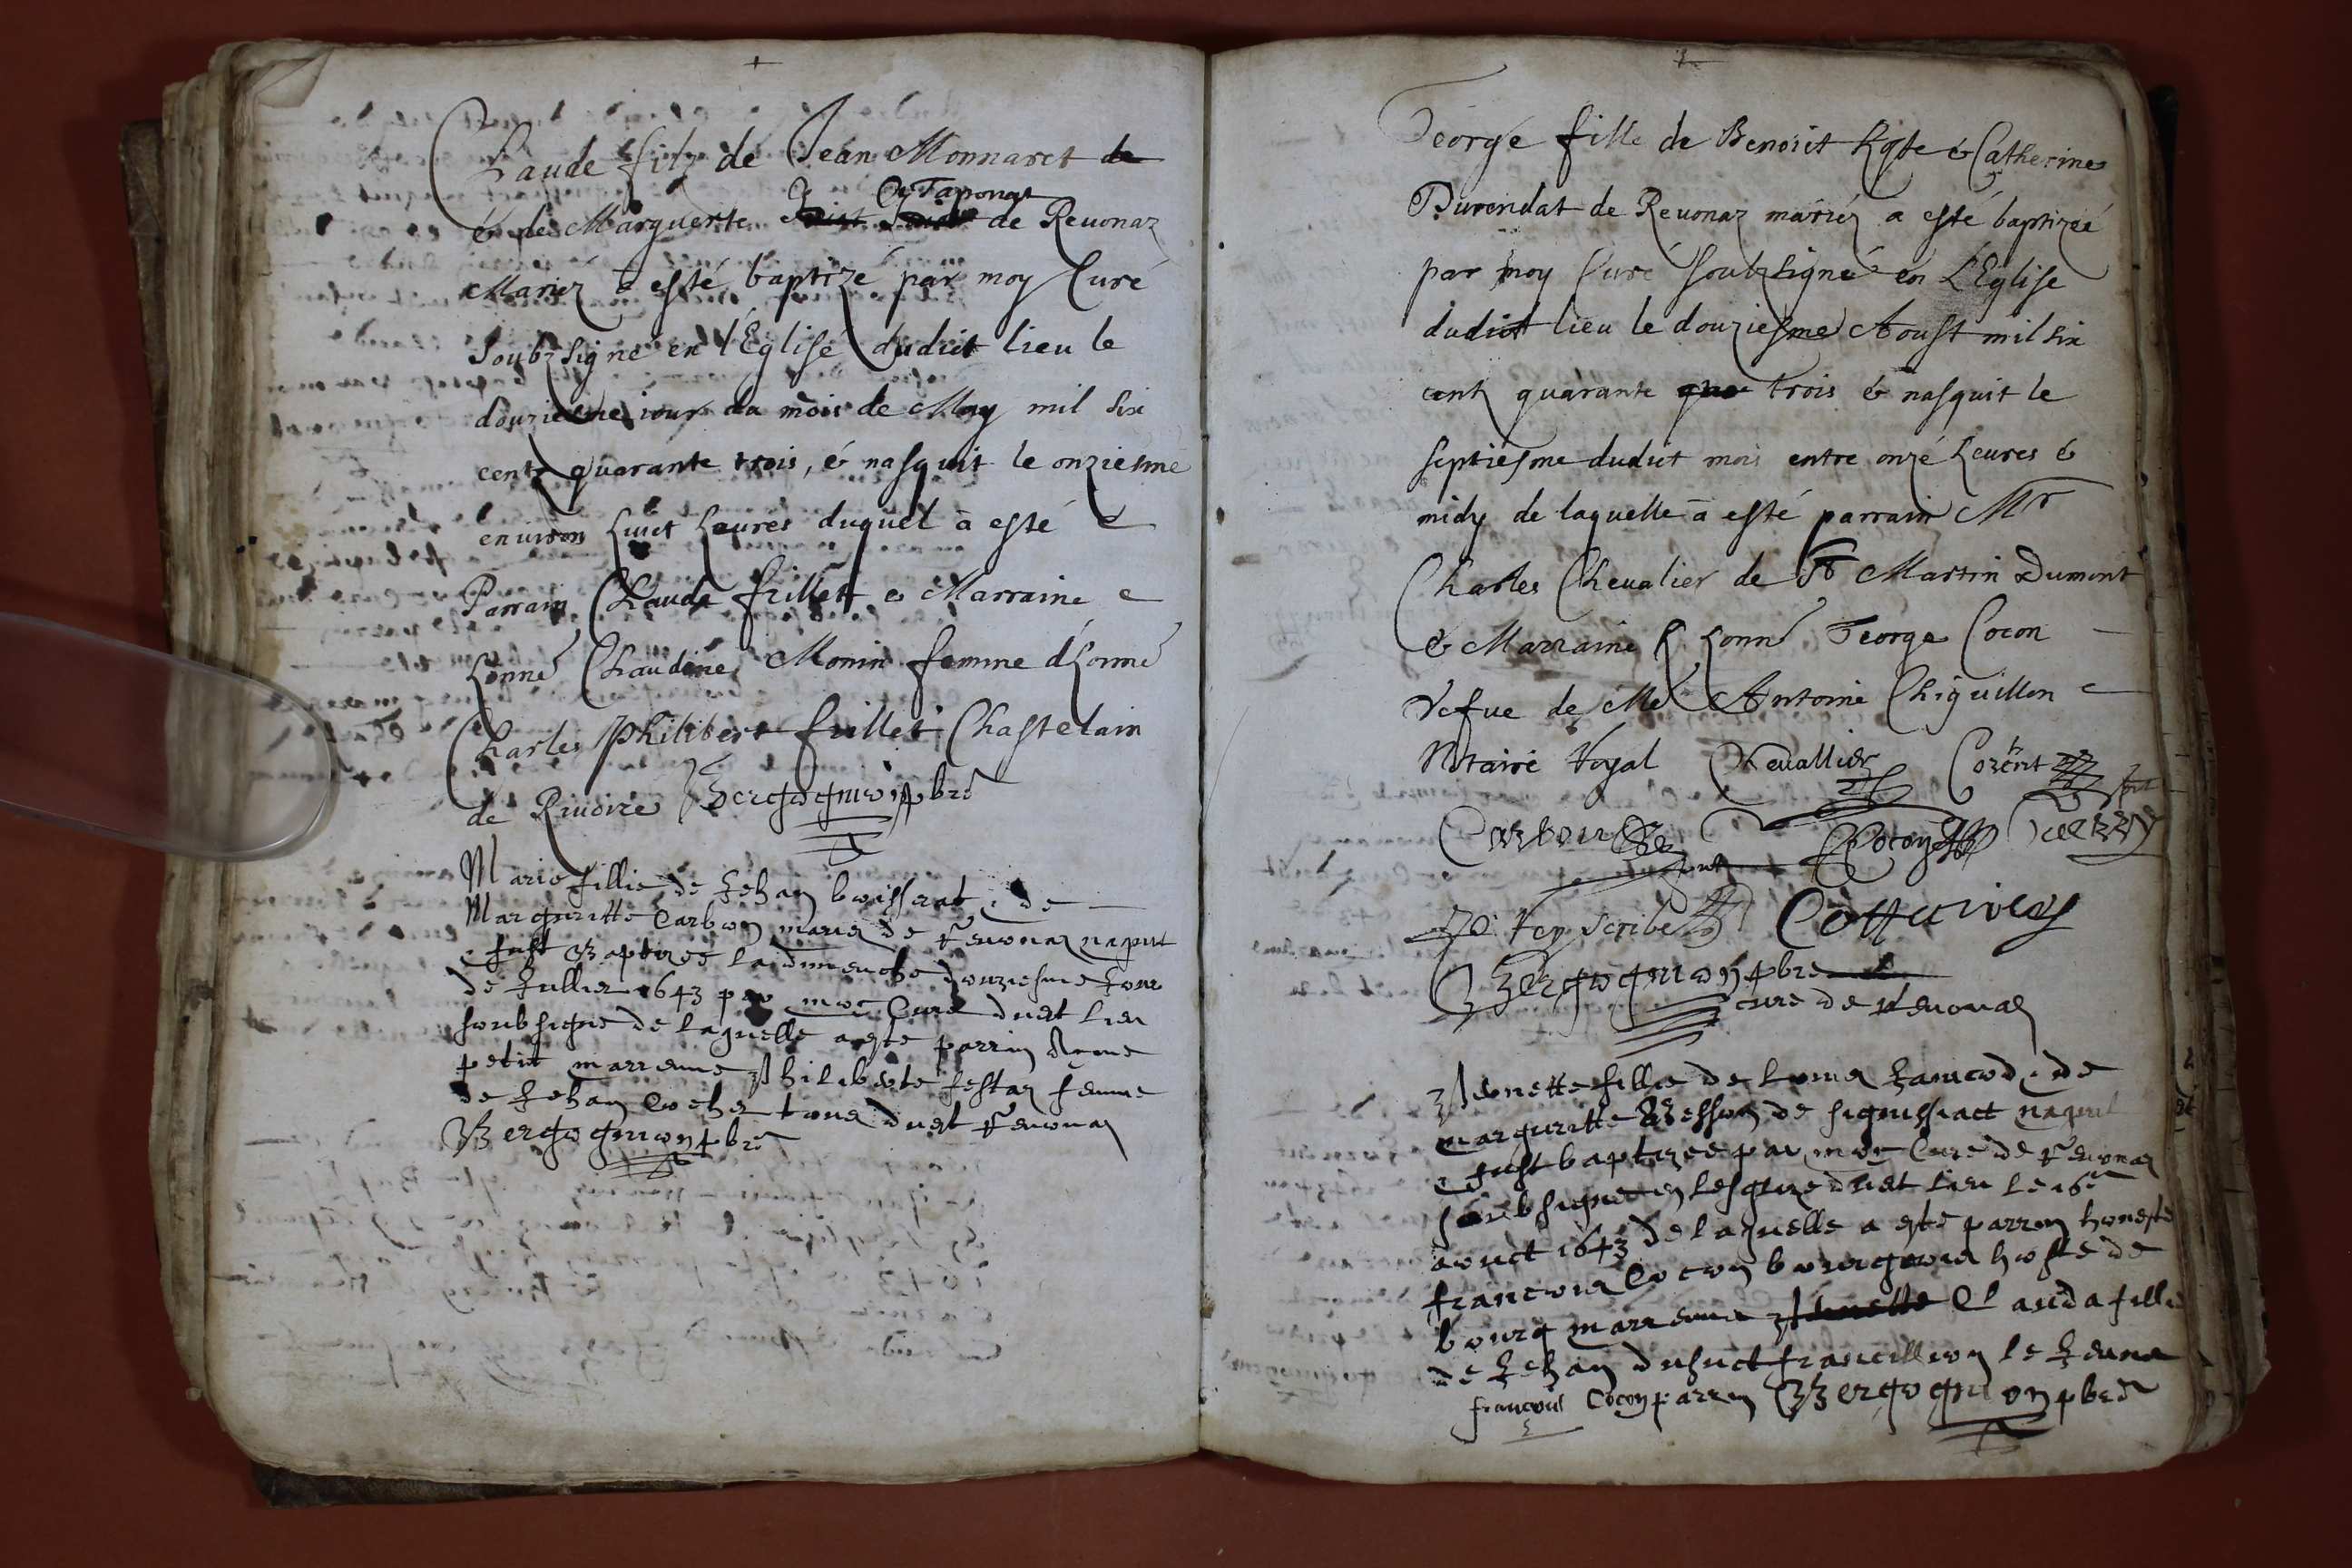 Claude filz de Jean Monnaret de
Tapona
& de Marguerite de Reuonaz
Mariez à esté baptizé par moy Curé
Soubzsigné en l'Eglise dudict lieu le
douziesme iour du mois de May mil six
centz quarante trois, & nasquit le onziesme
environ huict heures duquel à esté
Parrain Claude frillet & Marraine
honne Claudine Monin femme d'honne
Charles Philibert frillet Chastelain
de Riuoire Bergognion pbre
Marie fillie de Jehan boisserat & de
Marguritte Carbon mariez de Reuonaz naquit
& fust Baptizee la dimenche douziesme Jour
de Jullier 1643 par moy Curé dudt lieu
soubsigne de laquelle a este parrin
petit marrenne Philiberte festaz femme
de Jehan Cochet tous dudt Reuonaz
Bergognion pbre
George fille de Benoict & Catherine
Burendat de Reuonaz mariéz a esté baptizeé
par moy Curé soubzsigné en L'Eglise
dudict lieu le douziesme Aoust mil six
centz quarante trois & nasquit le
septiesme dudict mois entre onze heures &
midy de laquelle à esté parrain Mr
Charles Cheualier de St Martin Dumont
& Marraine honne George Cocon
Vefue de Me Antoine Chiguillon
Notaire Royal Cheuallier Corent
Carbon Cocon
scribe
Bergognion pbre
cure de Reuonaz
fillie de & de
marguritte Besson de signissiact naquit
& fust baptizee par moy Cure de Reuonaz
soubsigne en lesglize dudt lieu le 16e
aouct 1643 de laquelle a esté parrin honeste
francois Cocon bourgeois hoste de
bourg marrenne Clauda fillie
de Jehan francillion le Jeune
francois Cocon parrin Bergognion pbre